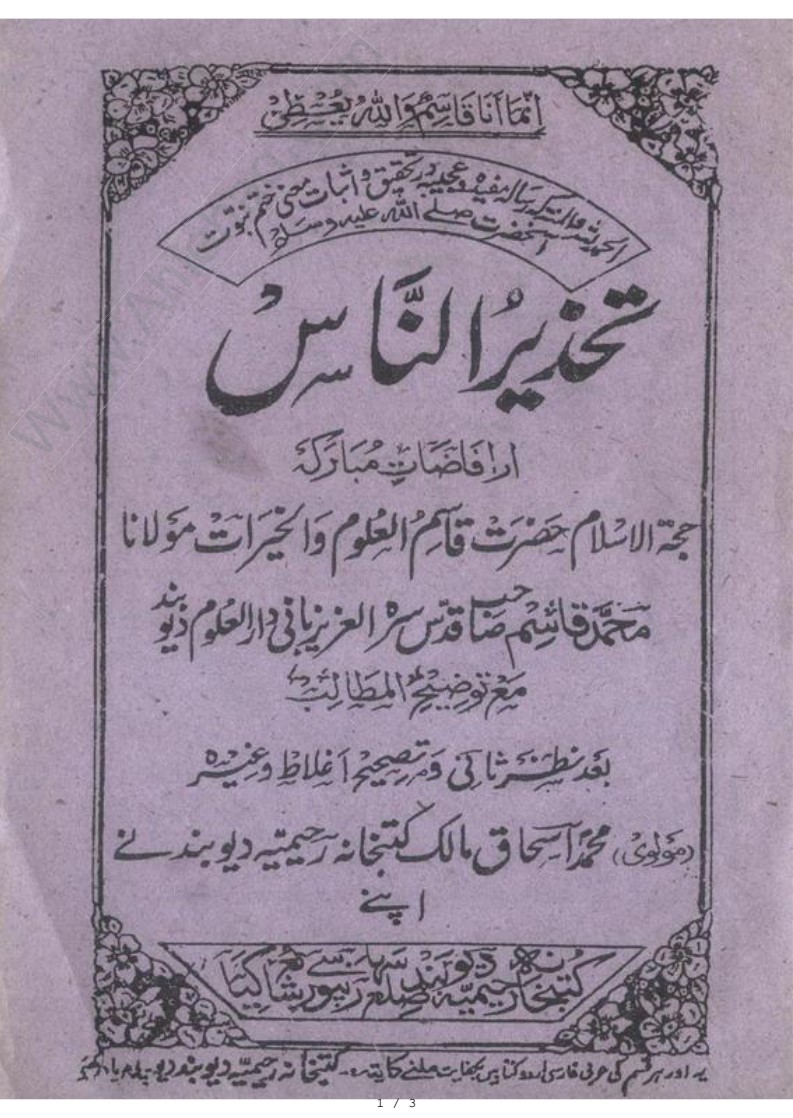 انما انا قاسم والله یعطی
الحمد للہ والمنۃ کہ رسالہ مفیدہ وعجیبہ در تحقیق و اثبات معنی ختم نبوت
آنحضرت صلے اللہ علیہ وسلم
تحذیرُ النَّاسْ
از افاضَاتِ مُبارَکہ
حجۃ الاسلام حضرت قاسم العلوم والخیرات مولانا
محمّد قاسم صاحب قدّس سرّہ العزیز بانی دارالعلوم دیوبند
مَع توضیح المطالب
بعد نظر ثانی و تصحیح اغلاط وغیرہ
(مولوی) محمد اسحاق مالک کتبخانہ رحیمیّہ دیوبند نے
اپنے
کتبخانہ رحیمیہ دیوبند ضلع سہارنپور سے شائع کیا
یہ اور ہر قسم کی عربی فارسی اردو کتابیں بکفایت ملنے کا پتہ:۔ کتبخانہ رحیمیّہ دیوبند
1 / 3